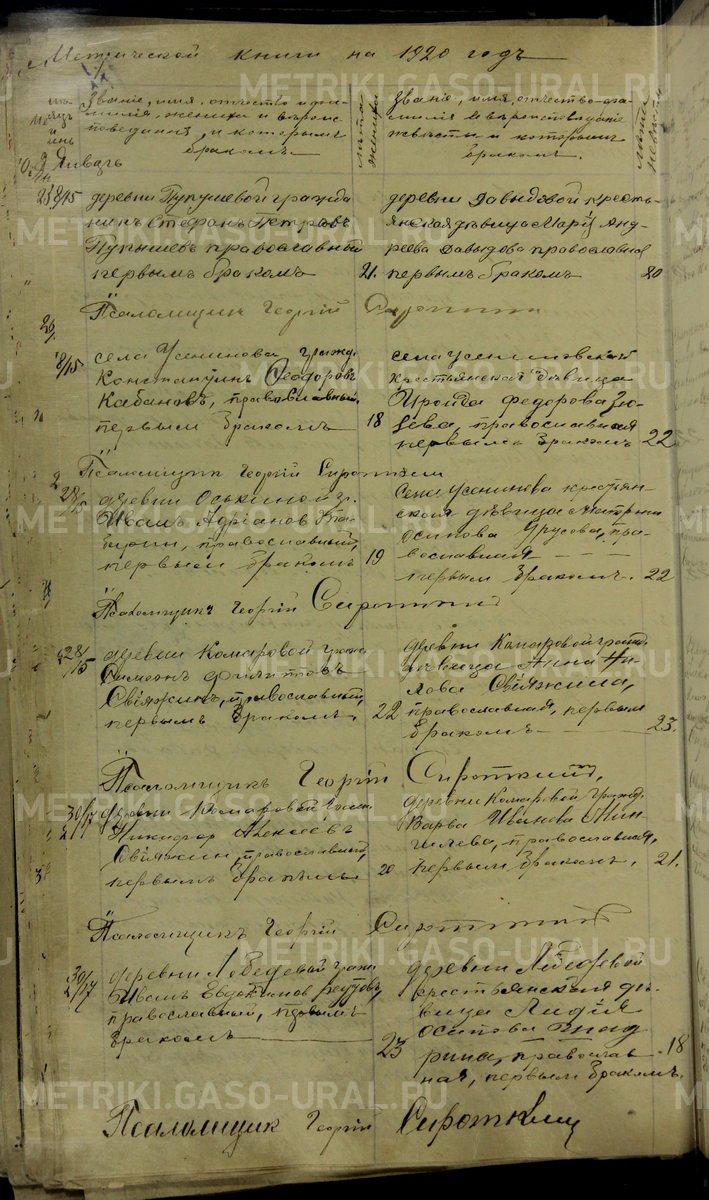 Метрической книги на 1920 годъ
Званіе, имя, отчество и фа-
милія жениха и вѣроис-
поведаніе, и которымъ
бракомъ.
лѣта
жениха
Званіе, имя, отчество фа-
милія и вѣроисповѣданіе
невѣсты и которымъ
бракомъ.
лѣта
невѣсты
Январь
28/15 деревни гражда
нинъ Стефанъ Петровъ
православный
первымъ бракомъ 21.
деревни Давыдовой кресть-
янская дѣвица Марія Анд-
реева Давыдова православная
первымъ бракомъ 20
Псаломщикъ Георгій Сироткин
28/15 села Усенинова гражд.
Константинъ Ѳеодоровъ
Кабановъ, православный,
первымъ бракомъ 18
села Усениновскаго
крестьянская дѣвица
Федорова
православная
первымъ бракомъ 22
Псаломщикъ Георгій Сироткин
28/15 деревни Оськиной гр.
Иванъ Адріановъ
православный,
первымъ бракомъ 19
Села Усенинова крестьян-
ская дѣвица
Осипова пра-
вославная
первым бракомъ. 22
Псаломщикъ Георгій Сироткин
28/15 деревни Комаровой гражд
Симеонъ Филиповъ
Свіяжинъ, православный,
первымъ бракомъ. 22
деревни Комаровой гражд.
дѣвица Анна Ни-
лова Свіяжина,
православная, первым
бракомъ 23.
Псаломщикъ Георгій Сироткин,
30/17 деревни Комаровой граж.
Никифор Алексеевъ
Свіяжин, православный,
первымъ бракомъ 20
деревни Комаровой гражд.
Варва Иванова
православная,
первым бракомъ. 21.
Псаломщикъ Георгій Сироткин
30/17 деревни Лебедевой граж
Иванъ Евдокимов
православный, первымъ
бракомъ 23
деревни Лебедевой
крестьянская дѣ-
вица Лидія
Осипова
православ
ная, первым бракомъ. 18
Псаломщик Георгій Сироткин
METRIKI.GASO-URAL.RU